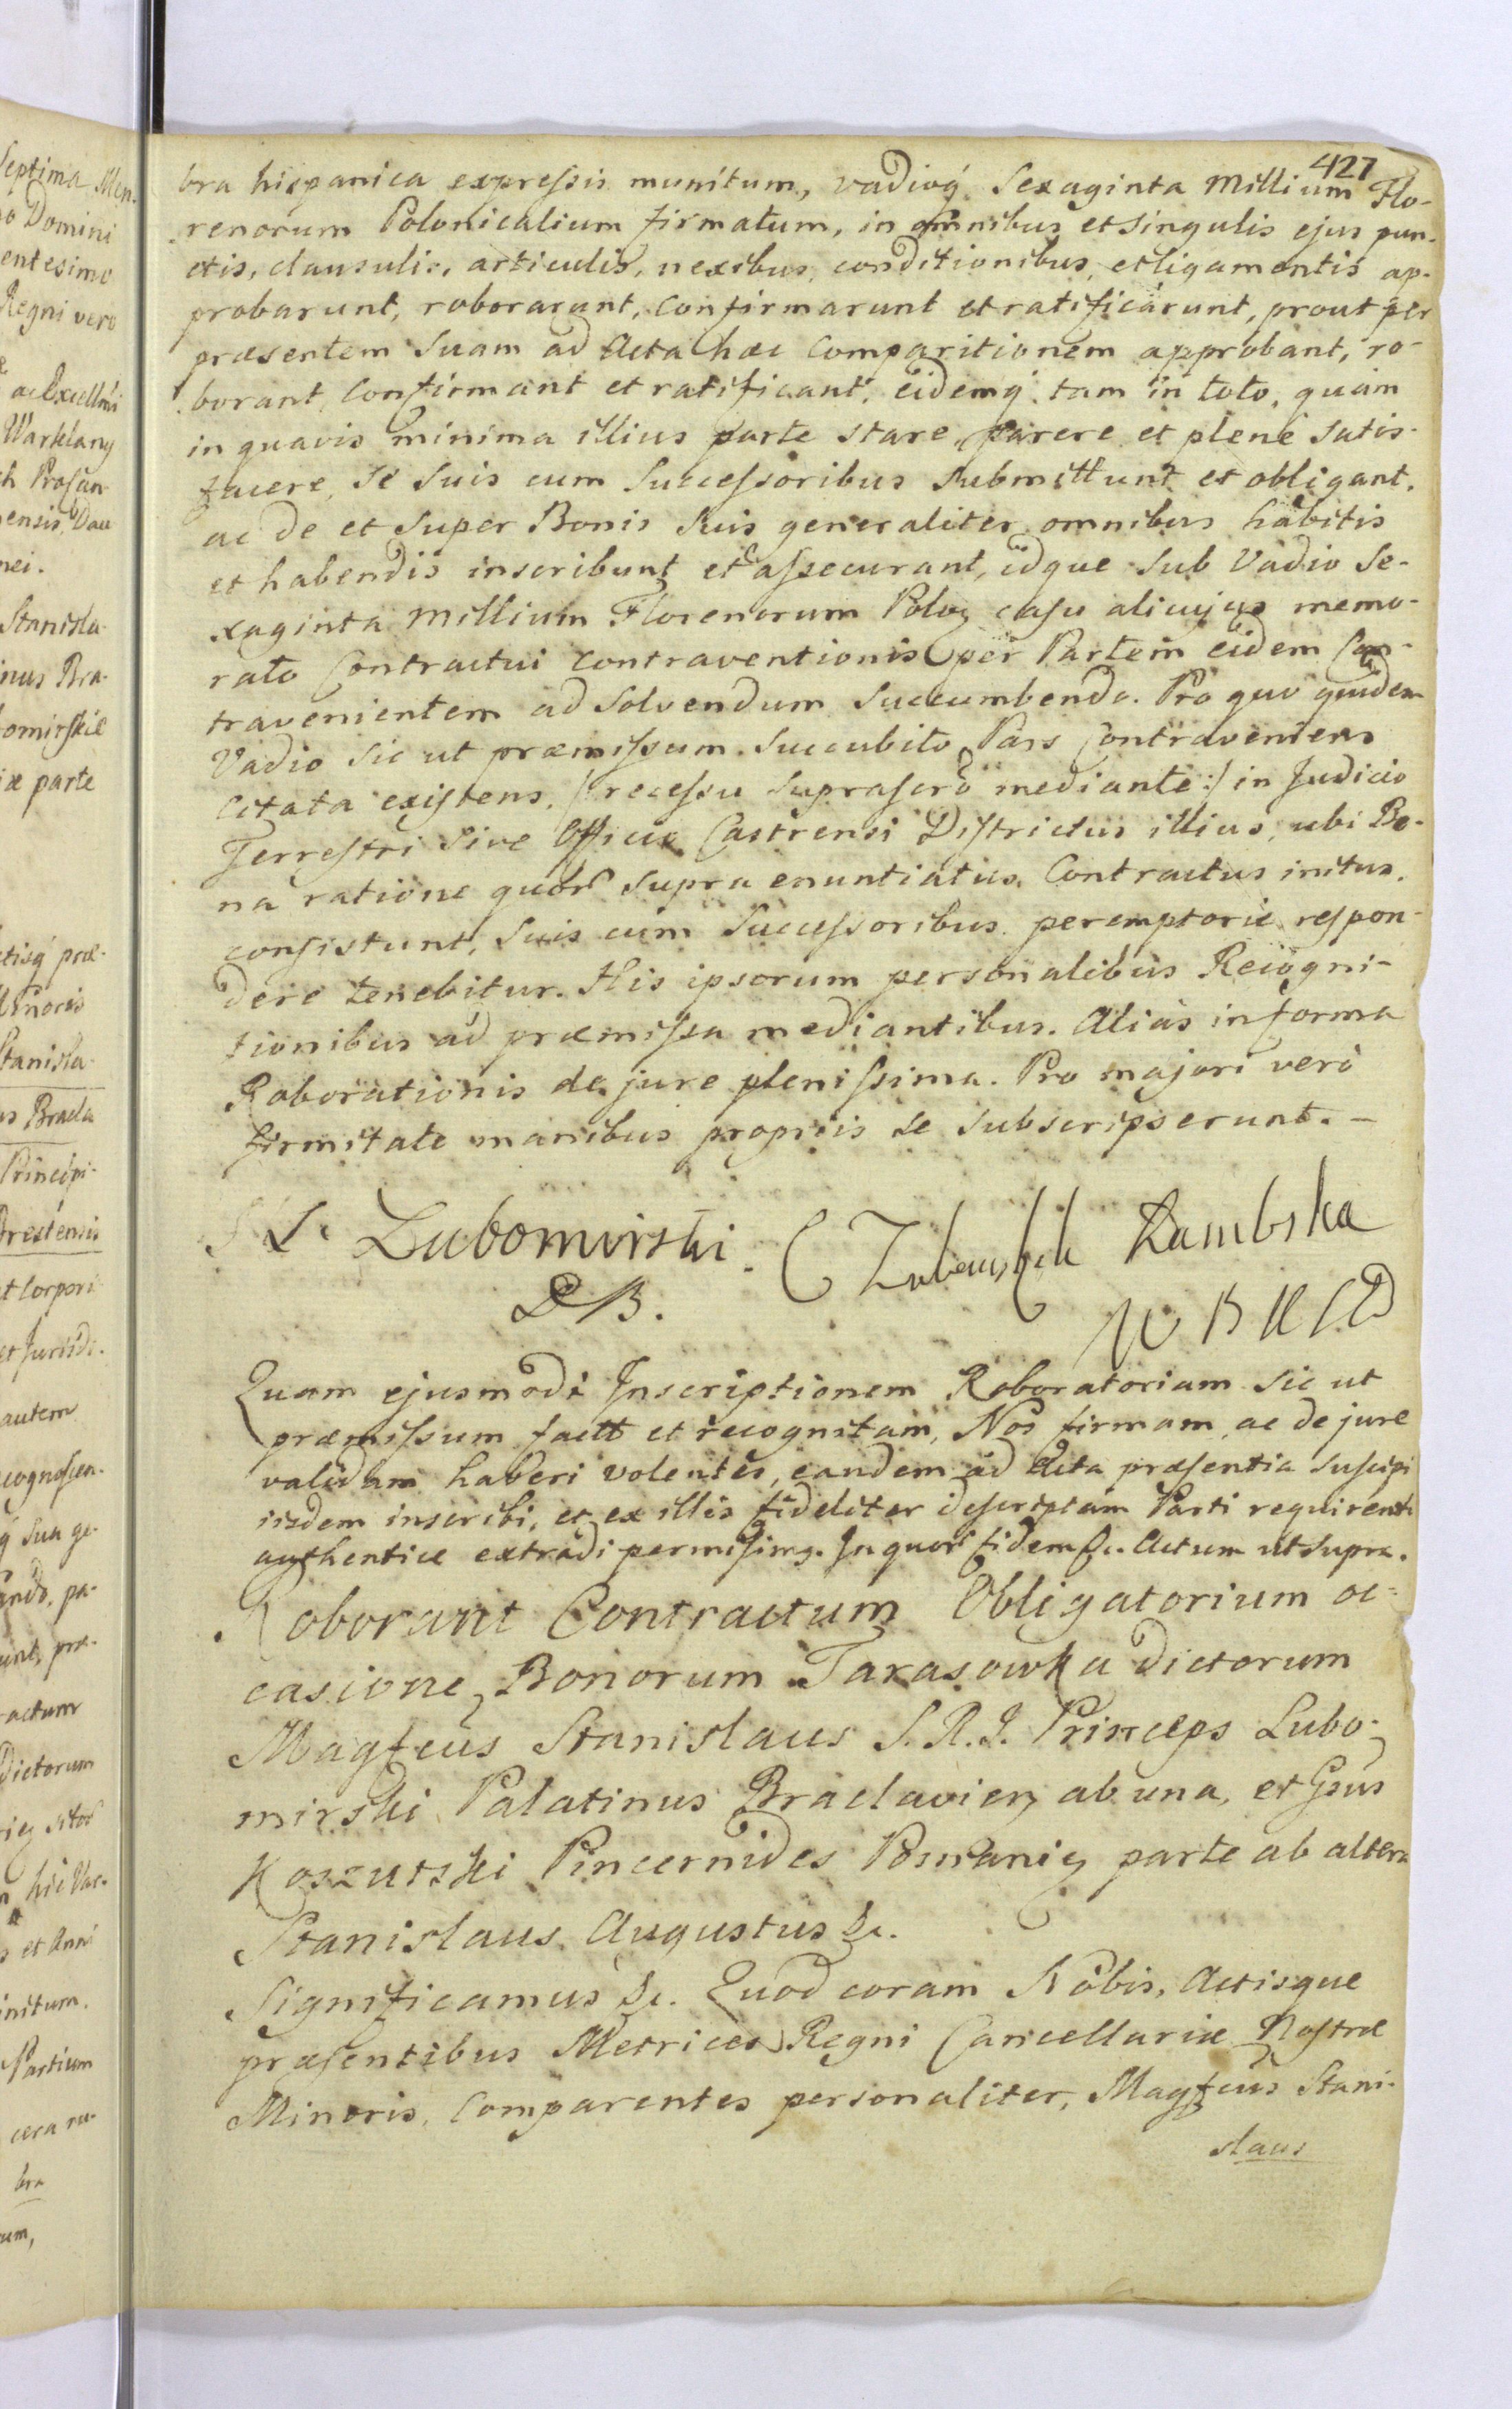 427
bra hispanica expressis munitum, vadioq́ Sexaginta Millium Flo-
renorum Polonicalium firmatum, in omnibus et singulis ejus pun-
ctis, clausulis, articulis, nexibus, conditionibus, et ligamentis ap-
probarunt, roborarunt, confirmarunt et ratificarunt, prout per
præsentem suam ad Acta hæc comparitionem approbant, ro-
borant, confirmant et ratificant, eidemq́ tam in toto, quàm
in quavis minima illius parte stare, parere et plenè satis-
facere, se suis cum Successoribus submittunt et obligant,
ac de et super Bonis suis generaliter omnibus habitis
et habendis inscribunt et assecurant, idque sub Vadio Se-
xaginta Millium Florenorum Polon casu alicujus memo-
rato Contractui contraventionis per Partem eidem Con-
travenientem ad solvendum succumbendo. Pro quo quidem
Vadio sic ut præmissum succubito Pars Contraveniens
citata existens. /: recessu suprascrō mediante :/ in Judicio
Terrestri sive Officio Castrensi Districtus illius, ubi Bo-
na ratione quor supra enuntiatus Contractus initus,
consistunt, suis cum Successoribus peremptoriè respon-
dere tenebitur. His ipsorum personalibus Recogni-
tionibus ad præmissa mediantibus. Aliàs in forma
Roborationis de jure plenissima. Pro majori verò
firmitate manibus propriis se subscripserunt. –
S L. Lubomirski. C Rambska
P B.
Quam ejusmodi Inscriptionem Roboratoriam sic ut
præmissum factt et recognitam, Nos firmam, ac de jure
validam haberi volentes, eandem ad Acta præsentia suscipi
iisdem inscribi, et ex illis fideliter descriptam Parti requirenti
authenticè extradi permisimq. In quor fidem &c. Actum ut supra.
Roborant Contractum Obligatorium oc-
casione Bonorum Tarasowka dictorum
Magfcus Stanislaus S.R.I. Princeps Lubo-
mirski Palatinus Braclavien ab una, et Gsus
Koszutski Pincernides Posnanien parte ab altera
Stanislaus Augustus &c.
Significamus &c. Quod coram Nobis, Actisque
præsentibus Metrices Regni Cancellariæ Nostræ
Minoris, Comparentes personaliter, Magfcus Stani-
slaus